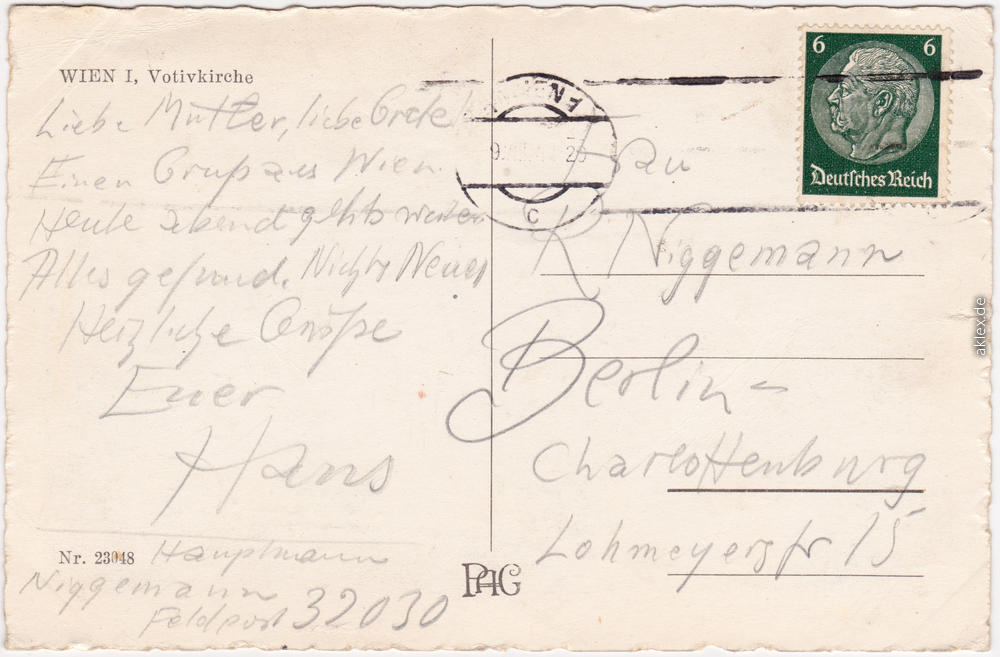 WIEN I, Votivkirche
Liebe Mutter, liebe Grete!
Einen Gruß aus Wien.
Heute abend gehts weiter
Alles gesund. Nichts Neues
Herzliche Grüße
Euer
Hans
Nr. 23048 Hauptmann
Niggemann
Feldpost 32030
PAG
6 6
Deutsches Reich
c
Frau
R. Niggemann
Berlin-
Charlottenburg
Lohmeyerstr 15
aklex.de